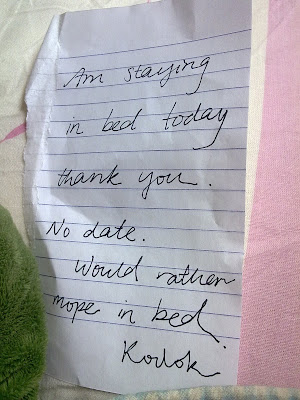 Am staying
in bed today
thank you.
No date.
Would rather
mope in bed.
Korlok